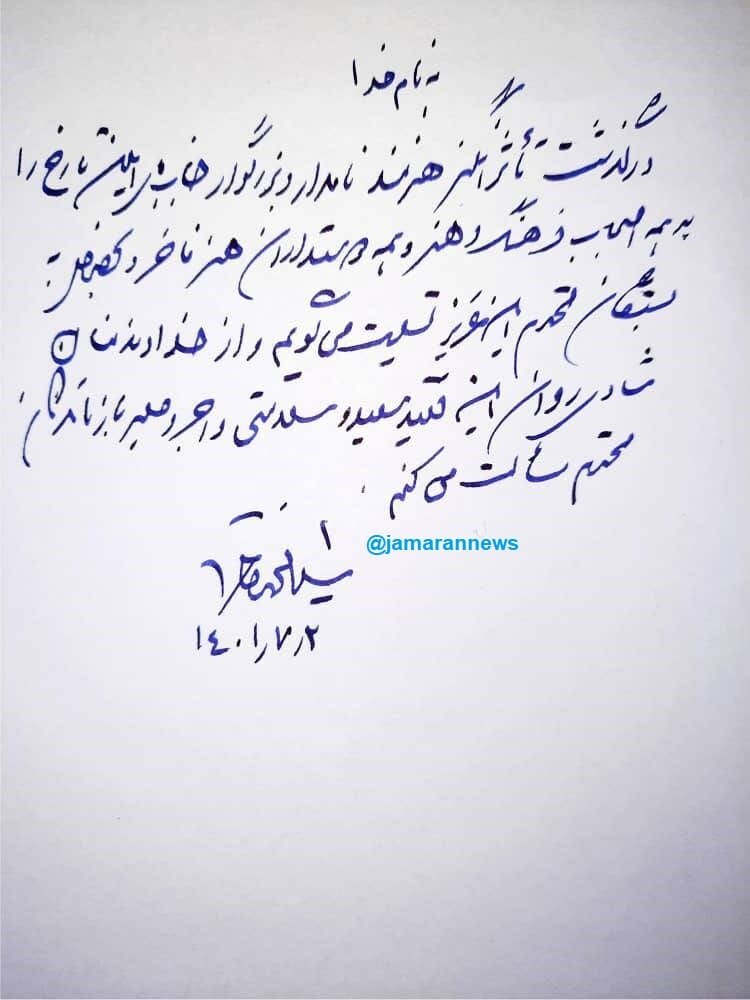 به نام خدا
درگذشت تأثرانگیز هنرمند نامدار و بزرگوار جناب امین تارخ را
به همه اصحاب فرهنگ و هنر و همه دوستداران هنر فاخر و بخصوص به
بستگان محترم این عزیز تسلیت می گویم و از خداوند منان
شادی روان این فقید سعید و سلامتی و اجر و صبر بازماندگان
محترم مسألت می کنم.
@jamarannews
سیدمحمد خاتمی
۱۴۰۱٫۷٫۲